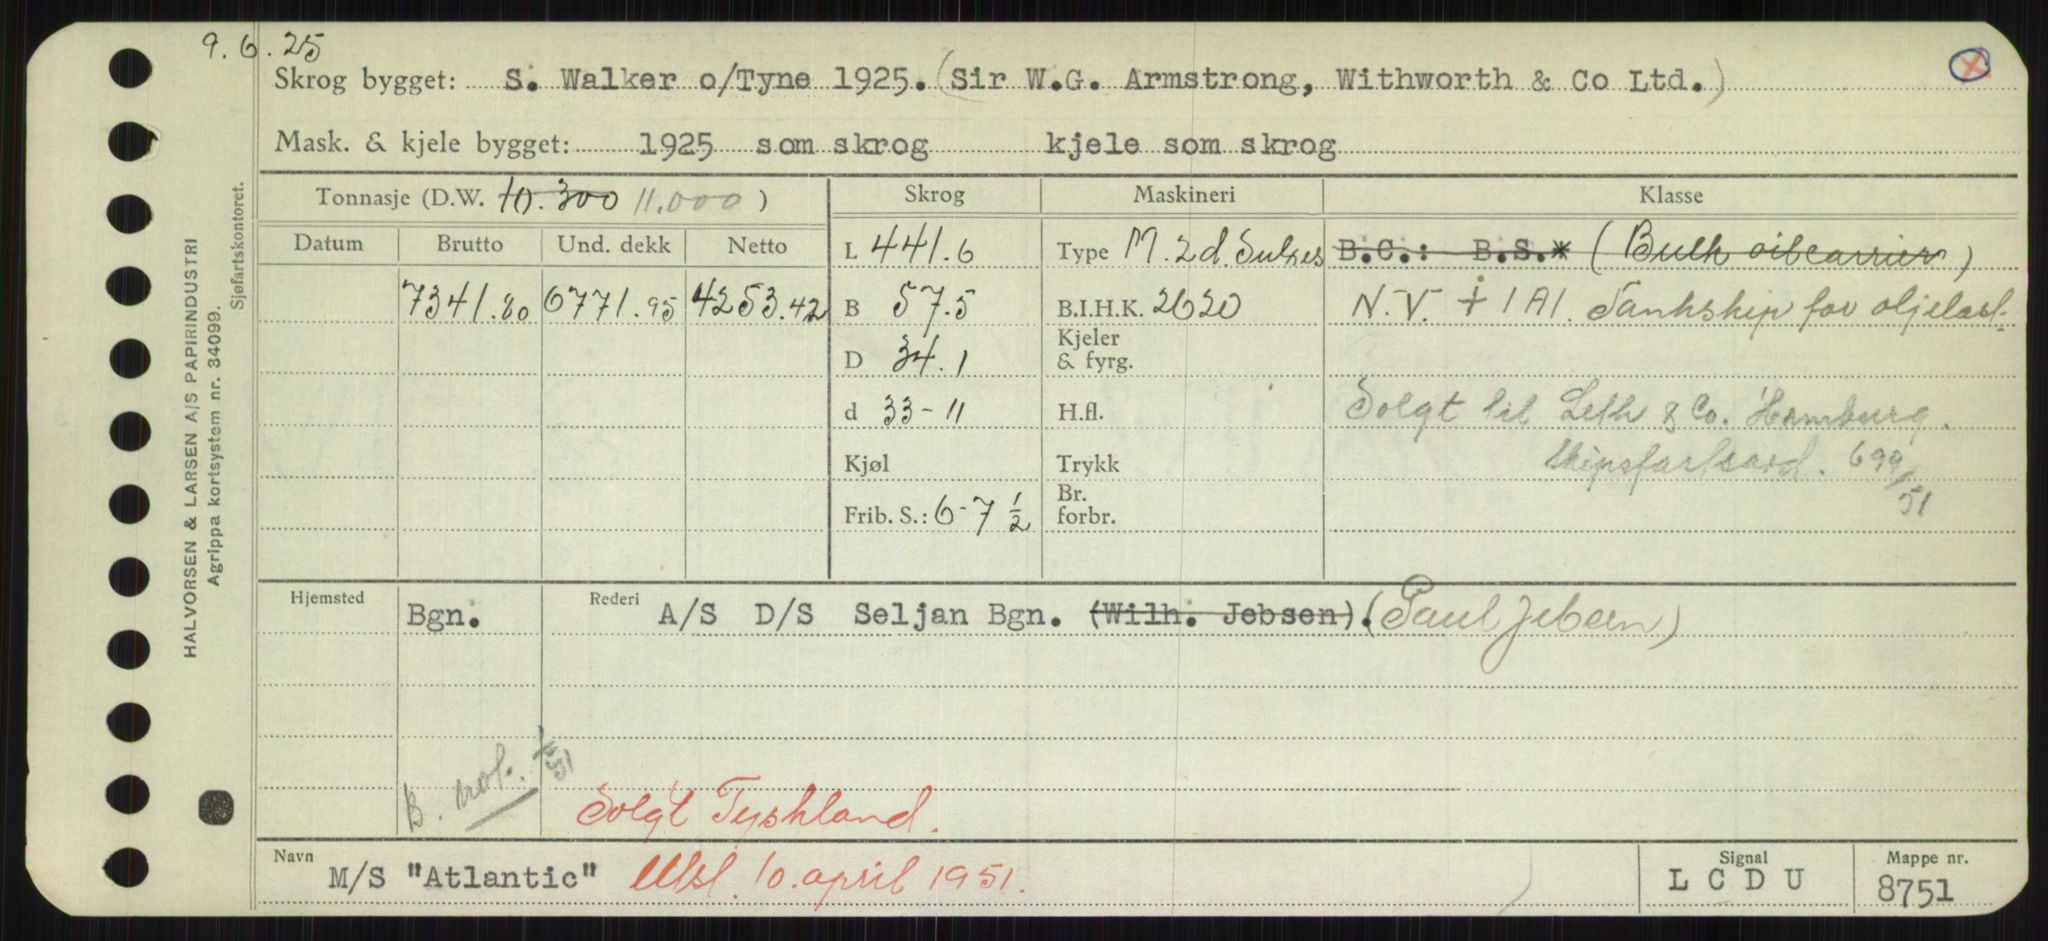 9.6.25
Skrog bygget: S. Walker o/Tyne 1925. (Sir W.G. Armstrong, Withworth & Co Ltd.)
Mask. & kjele bygget: 1925 som skrog kjele som skrog
Tonnasje (D.W. 10.300 11.000) Skrog Maskineri Klasse
Datum Brutto Und. dekk Netto L 441.6 Type M. 2 d. Sulzes B.C.: B.S.* (Bulk oilcarrier)
7341.80 6771.95 4253.42 B 57.5 B.I.H.K. 2620 N.V. + 1A1. Tankskip for oljelast
D 34.1 Kjeler & fyrg.
d 33-11 H.fl. Solgt til Leth & Co. Hamburg.
Kjøl Trykk Skipsfartsavd. 699/51
Frib. S.: 6-7 1/2 Br. forbr.
Hjemsted Bgn. Rederi A/S D/S Seljan Bgn. (Wilh. Jebsen). (Paul Jebsen)
B. not. 1/5 51
Solgt Tyskland.
Navn M/S "Atlantic" Utsl. 10. april 1951. Signal LCDU Mappe nr. 8751
HALVORSEN & LARSEN A/S PAPIRINDUSTRI
Agrippa kortsystem nr. 34099.
Sjøfartskontoret.